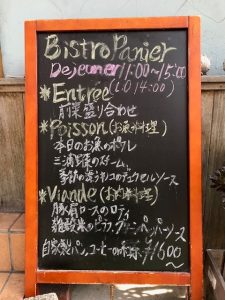 Bistro Panier
Dejeuner 11:00〜15:00
(L.O 14:00)
*Entrée
前菜盛り合わせ
*Poisson (お魚料理)
本日のお魚のポワレ
三浦野菜のスチーム
季節の
ソース
*Viande (お肉料理)
豚肩ロースのロティ
グリーンペッパーソース
自家製パン、コーヒーor紅茶 ¥1600
〜